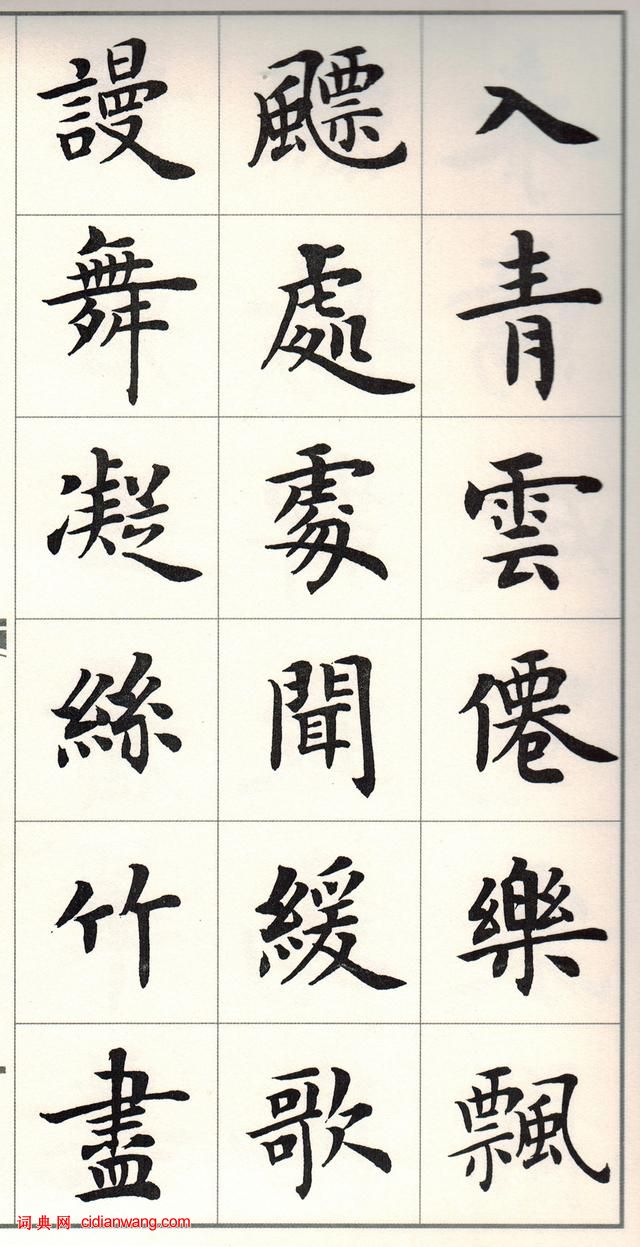 入青雲僊樂飄
飃處處聞緩歌
謾舞凝絲竹盡
词典网 cidianwang.com